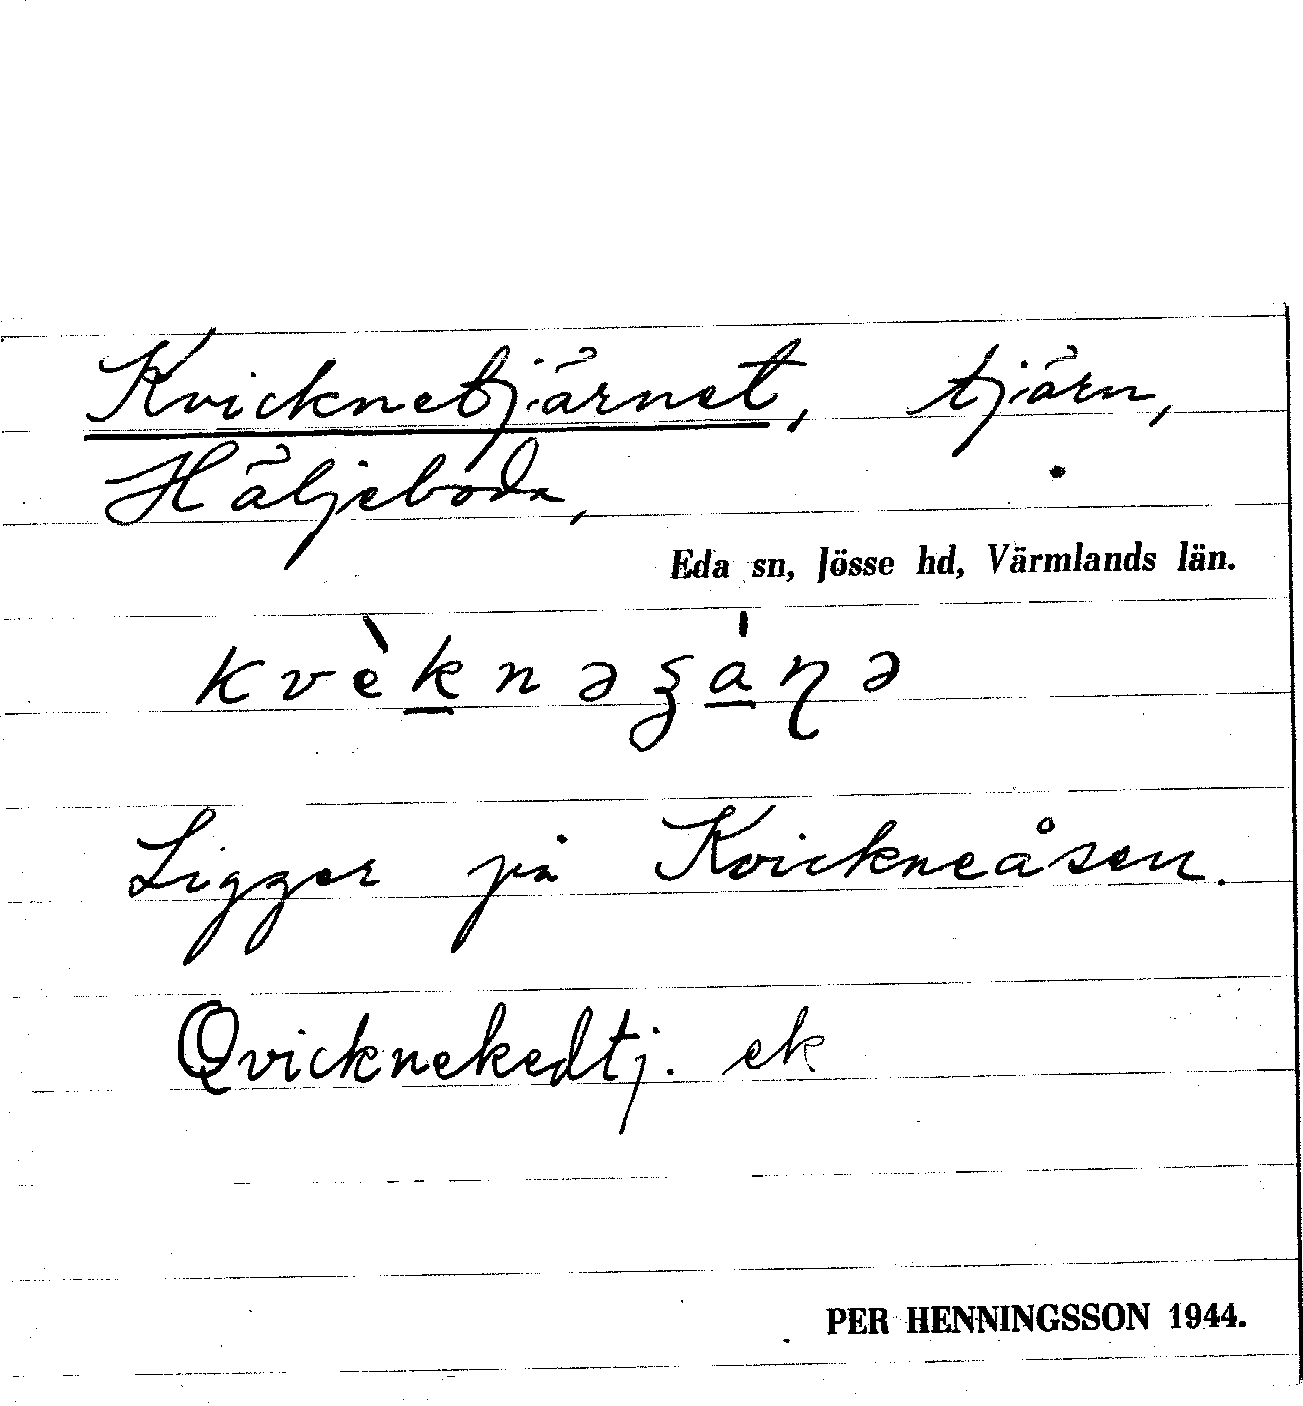 Kvicknetjärnet, tjärn,
Häljeboda,
Eda sn, Jösse hd, Värmlands län.
kvèknəʂáɳə
Ligger på Kvickneåsen.
Qvicknekedtj. ek
PER HENNINGSSON 1944.